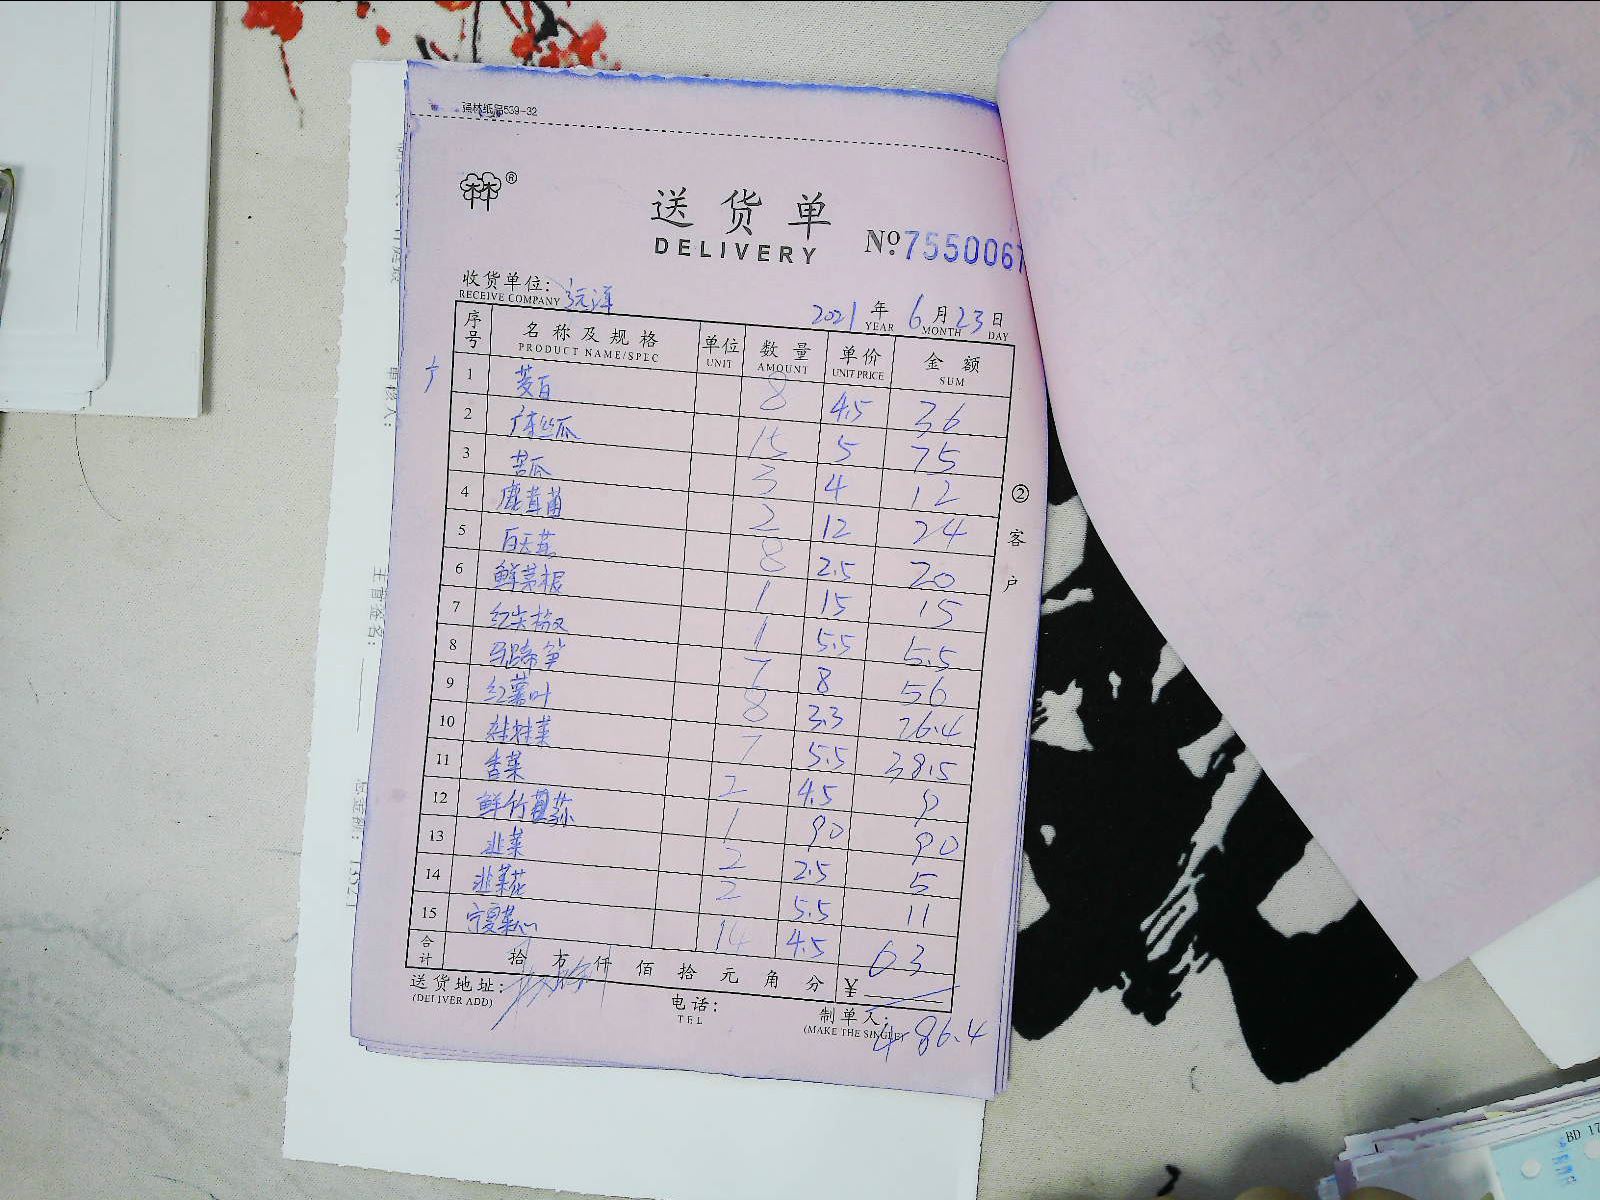 强林纸品539-32
®
送货单
DELIVERY
No.7550067
收货单位: 远洋
RECEIVE COMPANY
2021年6月23日
YEAR MONTH DAY
序号 名称及规格 单位 数量 单价 金额
PRODUCT NAME/SPEC UNIT AMOUNT UNIT PRICE SUM
1 茭白 8 4.5 36
2 广东丝瓜 15 5 75
3 苦瓜 3 4 12
4 鹿茸菌 2 12 24
5 白天菜 8 2.5 20
6 鲜茅根 1 15 15
7 红尖椒 1 5.5 5.5
8 马蹄笋 7 8 56
9 红薯叶 8 3.3 26.4
10 娃娃菜 7 5.5 38.5
11 香菜 2 4.5 9
12 鲜竹荪 1 90 90
13 韭菜 2 2.5 5
14 韭菜花 2 5.5 11
15 宁夏菜心 14 4.5 63
合计 拾万仟佰拾元角分 ¥
486.4
送货地址:
(DELIVER ADD)
电话:
TEL
制单人:
(MAKE THE SINGLE)
②客户
主管签名:
BD 17